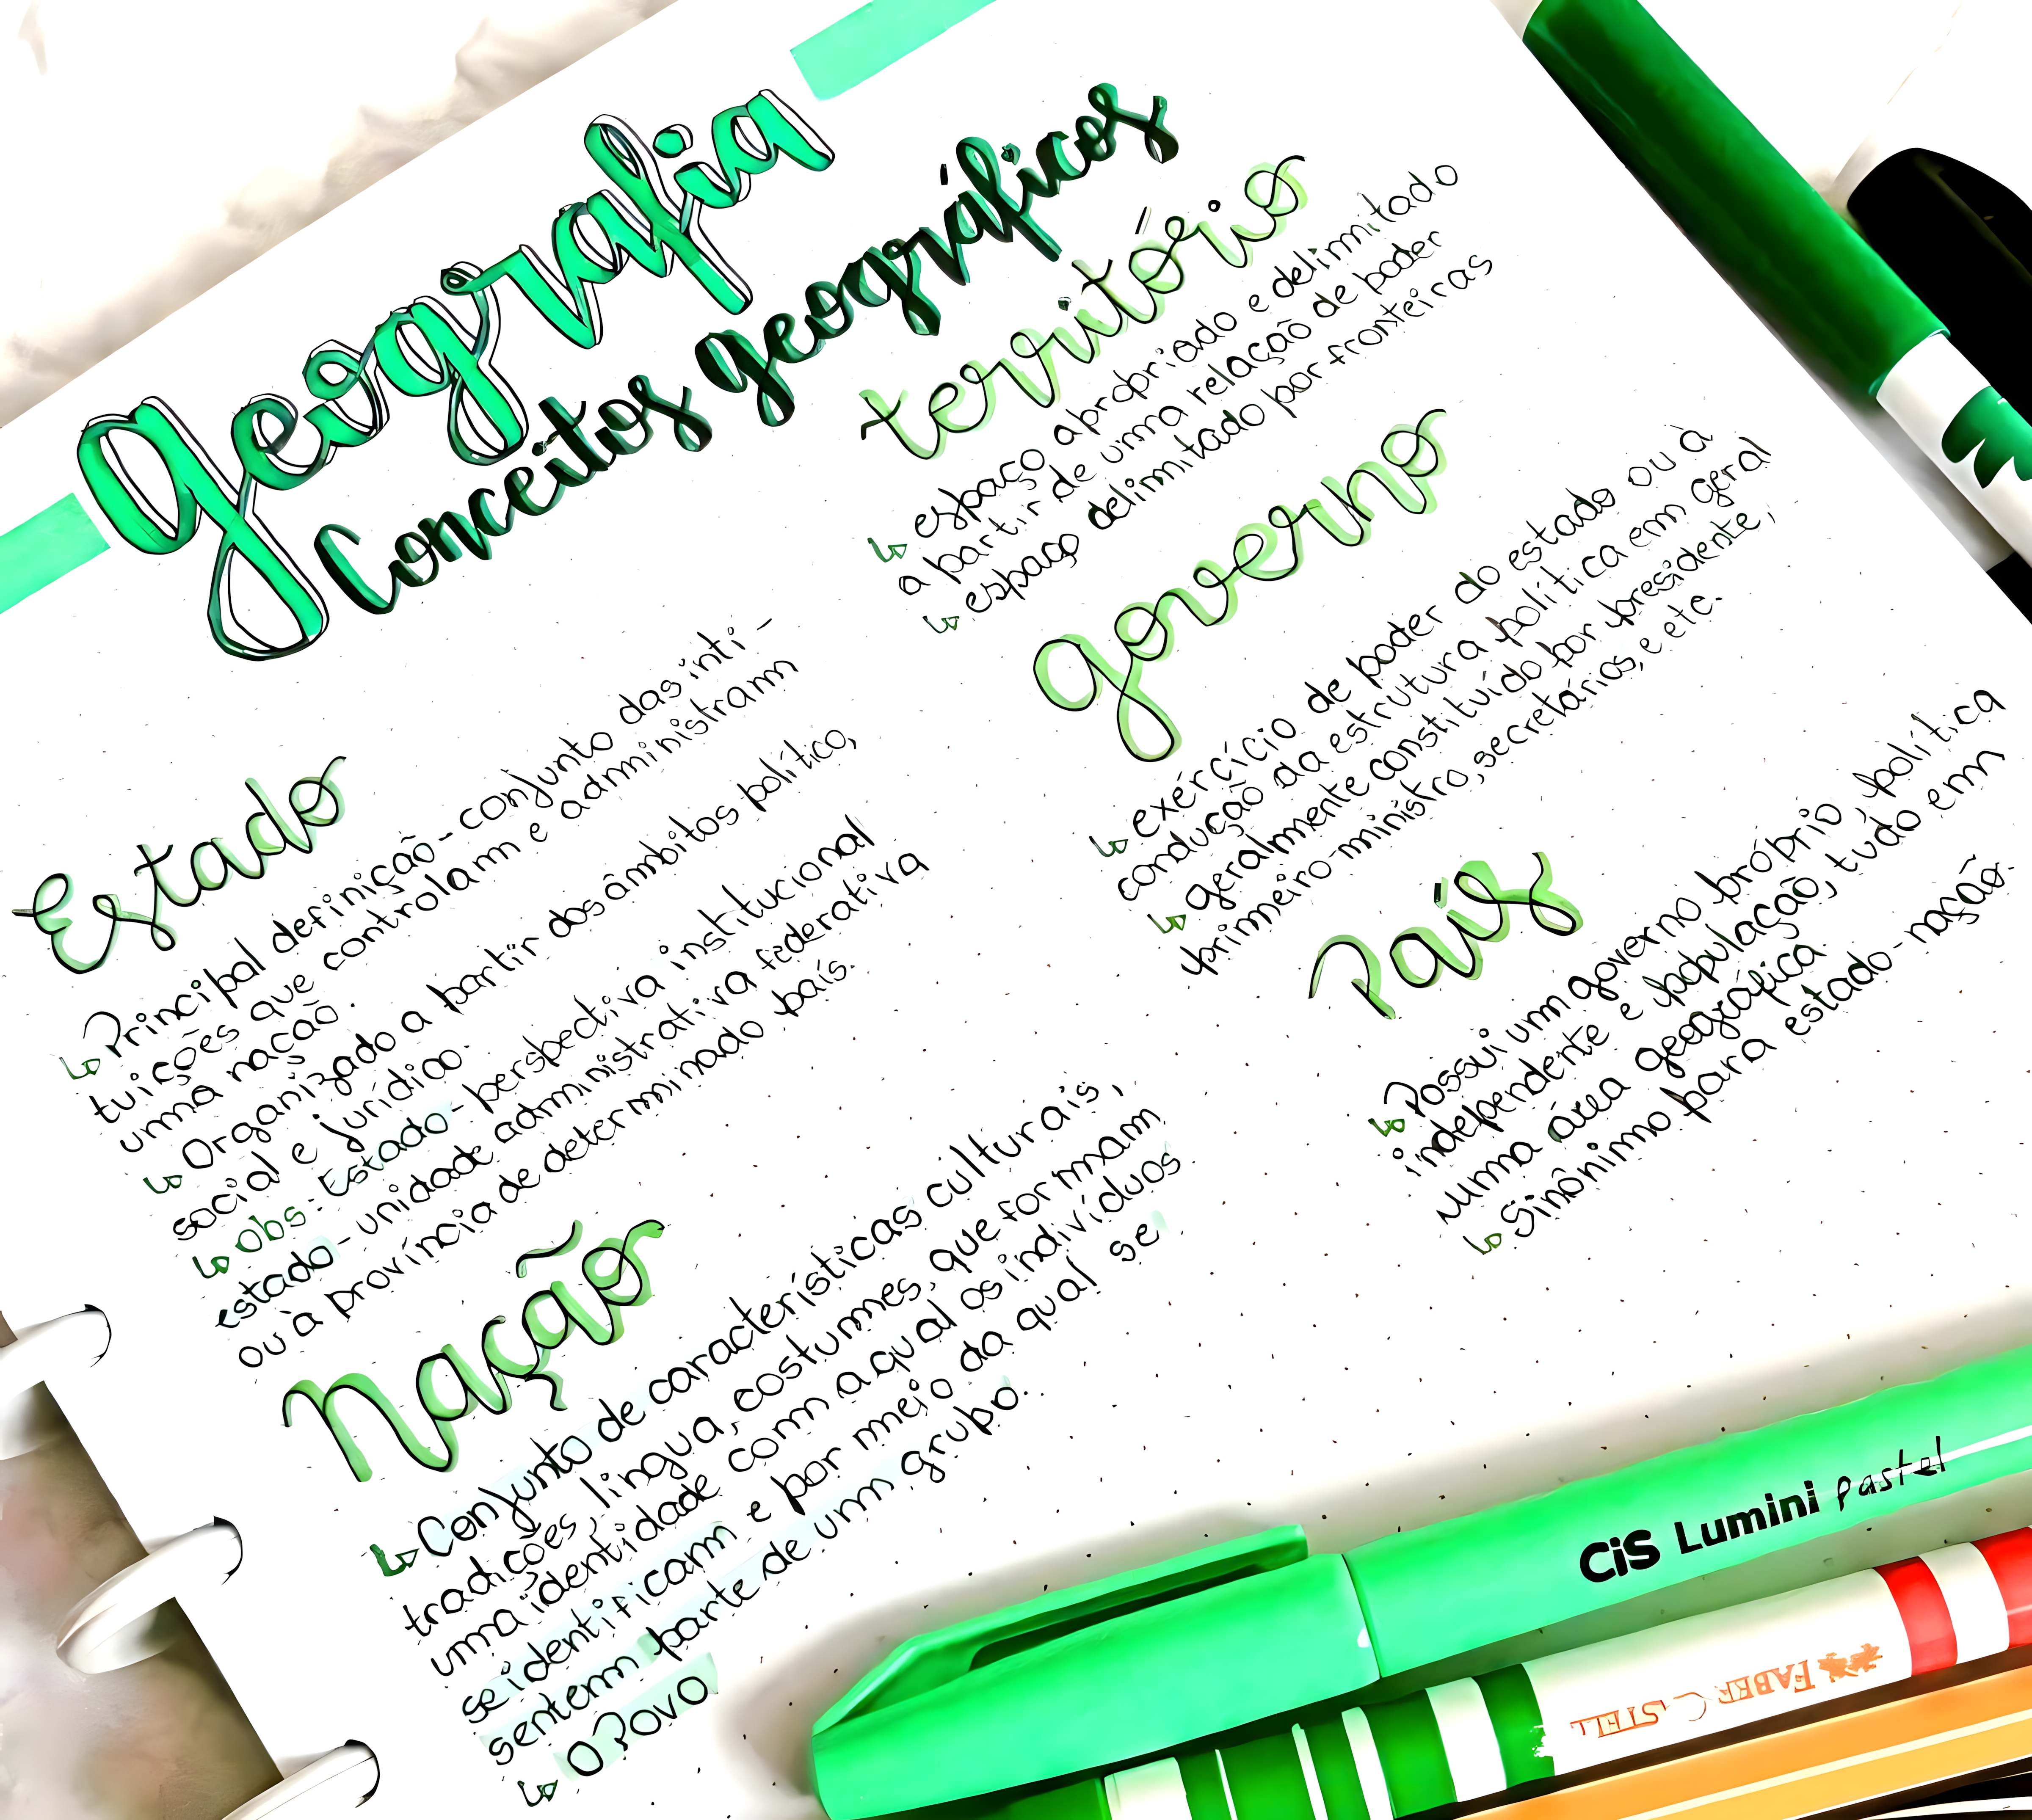 geografia
Conceitos geográficos
Estado
↳ Principal definição - conjunto das inti-
tuições que controlam e administram
uma nação.
↳ Organizado a partir dos âmbitos político,
social e jurídico.
↳ Obs: Estado - perspectiva institucional
estado - unidade administrativa federativa
ou à província de determinado país.
nação
↳ Conjunto de características culturais,
tradições, lingua, costumes, que formam
uma identidade com a qual os indivíduos
se identificam e por meio da qual se
sentem parte de um grupo.
↳ O Povo
território
↳ espaço apropriado e delimitado
a partir de uma relação de poder
↳ espaço delimitado por fronteiras
governo
↳ exércício de poder do estado ou à
condução da estrutura política em geral
↳ geralmente constituído por presidente,
primeiro-ministro, secretários, e etc.
País
↳ Possui um governo próprio, política
independente e população, tudo em
numa área geográfica.
↳ Sinônimo para estado-nação.
CiS Lumini pastel
FABER CASTELL